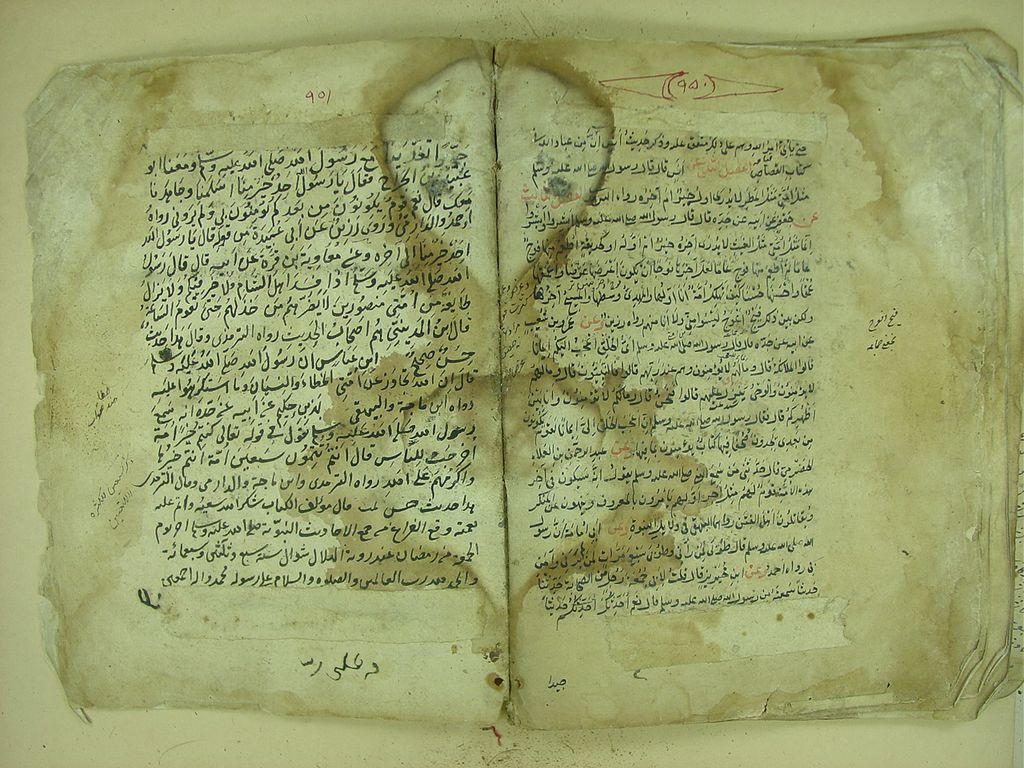 (٩٥٠)
حتى ياتي امر الله وهم على ذلك متفق عليه وذكر حديث انس ان من عباد الله
كتاب القصاص الفصل الثاني عن انس قال قال رسول الله صلى الله عليه وسلم
مثل امتي مثل المطر لا يدرى اوله خير ام اخره رواه الفصل الثالث
عن جعفر عن ابيه عن جده قال قال رسول الله صلى الله عليه وسلم ابشروا وابشروا
انما مثل امتي مثل الغيث لا يدرى اخره خير ام اوله او كحديقة اطعم منها فوج
عاما ثم اطعم منها فوج عاما لعل اخرها فوجا ان يكون اعرضها عرضا واعمقها
عمقا واحسنها حسنا كيف تهلك امة انا اولها والمهدي وسطها والمسيح اخرها
ولكن بين ذلك فيج اعوج ليسوا مني ولا انا منهم رواه رزين وعن عمرو بن شعيب
عن ابيه عن جده قال قال رسول الله صلى الله عليه وسلم اي الخلق اعجب اليكم ايمانا
قالوا الملائكة قال وما لهم لا يؤمنون وهم عند ربهم قالوا فالنبيون قال وما لهم
لا يؤمنون والوحي ينزل عليهم قالوا فنحن قال وما لكم لا تؤمنون وانا بين
اظهركم قال فقال رسول الله صلى الله عليه وسلم ان اعجب الخلق الي ايمانا لقوم يكونون
من بعدي يجدون صحفا فيها كتاب يؤمنون بما فيها وعن عبد الرحمن بن العلاء
الحضرمي قال حدثني من سمع النبي صلى الله عليه وسلم يقول انه سيكون في آخر
هذه الامة قوم لهم مثل اجر اولهم يامرون بالمعروف وينهون عن المنكر
ويقاتلون اهل الفتن رواهما البيهقي في دلائل النبوة وعن ابي امامة ان رسول
الله صلى الله عليه وسلم قال طوبى لمن رآني وطوبى سبع مرات لمن لم يرني وآمن
بي رواه احمد وعن ابن محيريز قال قلت لابي جمعة رجل من الصحابة حدثنا
حديثا سمعته من رسول الله صلى الله عليه وسلم قال نعم احدثكم حديثا
جيدا
٩٥١
جيدا تغدينا مع رسول الله صلى الله عليه وسلم ومعنا ابو
عبيدة بن الجراح فقال يا رسول الله احد خير منا اسلمنا وجاهدنا
معك قال نعم قوم يكونون من بعدكم يؤمنون بي ولم يروني رواه
احمد والدارمي وروى رزين عن ابي عبيدة من قوله قال يا رسول الله
احد خير منا الى اخره وعن معاوية بن قرة عن ابيه قال قال رسول
الله صلى الله عليه وسلم اذا فسد اهل الشام فلا خير فيكم ولا يزال
طايفة من امتي منصورين لا يضرهم من خذلهم حتى تقوم الساعة
قال ابن المديني هم اصحاب الحديث رواه الترمذي وقال هذا حديث
حسن صحيح ابن عباس ان رسول الله صلى الله عليه وسلم
قال ان الله تجاوز عن امتي الخطاء والنسيان وما استكرهوا عليه
رواه ابن ماجة والبيهقي بهز بن حكيم عن ابيه عن جده انه سمع
رسول الله صلى الله عليه وسلم يقول في قوله تعالى كنتم خير امة
اخرجت للناس قال انتم تتمون سبعين امة انتم خيرها
واكرمهم على الله رواه الترمذي وابن ماجة والدارمي وقال الترمذي
هذا حديث حسن تمت قال مولف الكتاب شكر الله سعيه واتم عليه
نعمته وقع الفراغ من جمع الاحاديث النبوية صلى الله عليه وسلم اخر يوم
الجمعة من رمضان عند روية الهلال شوال سنة سبع وثلثين وسبعمائة
والحمد لله رب العالمين والصلاة والسلام على رسوله محمد واله اجمعين